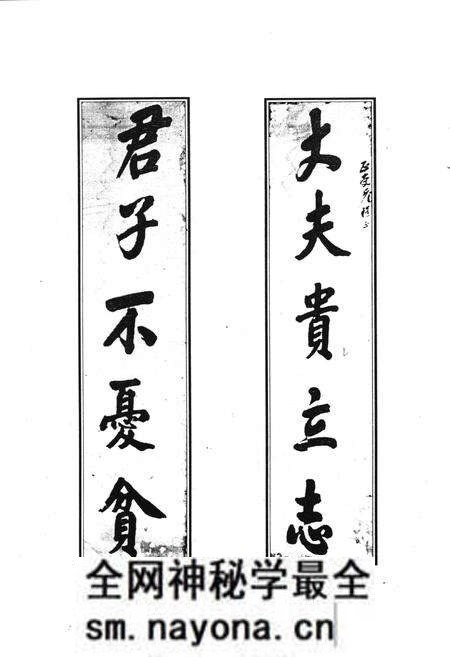 丈夫貴立志
君子不憂貧
全网神秘学最全
sm.nayona.cn